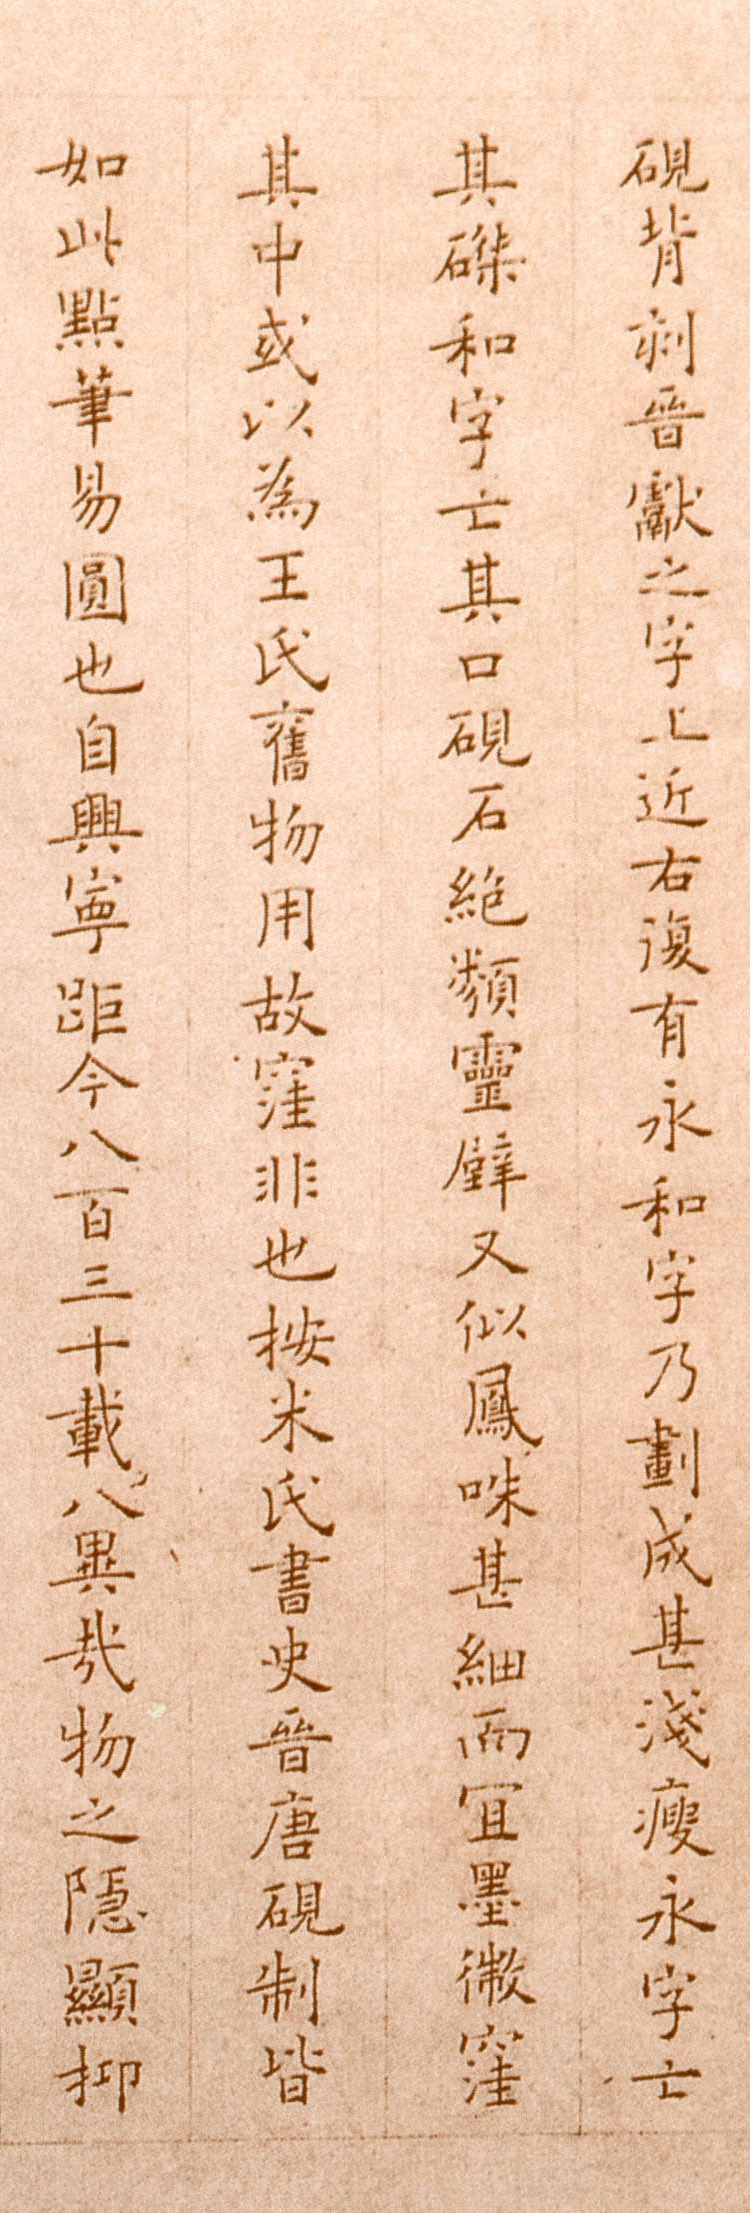 硯背刻晉獻之字上近右復有永和字乃劃成甚淺瘦永字亡
其磔和字亡其口硯石絶類靈壁又似鳳咮甚細而宜墨微窪
其中或以為王氏舊物用故窪非也按米氏書史晉唐硯制皆
如此點筆易圓也自興寧距今八百三十載八異哉物之隱顯抑